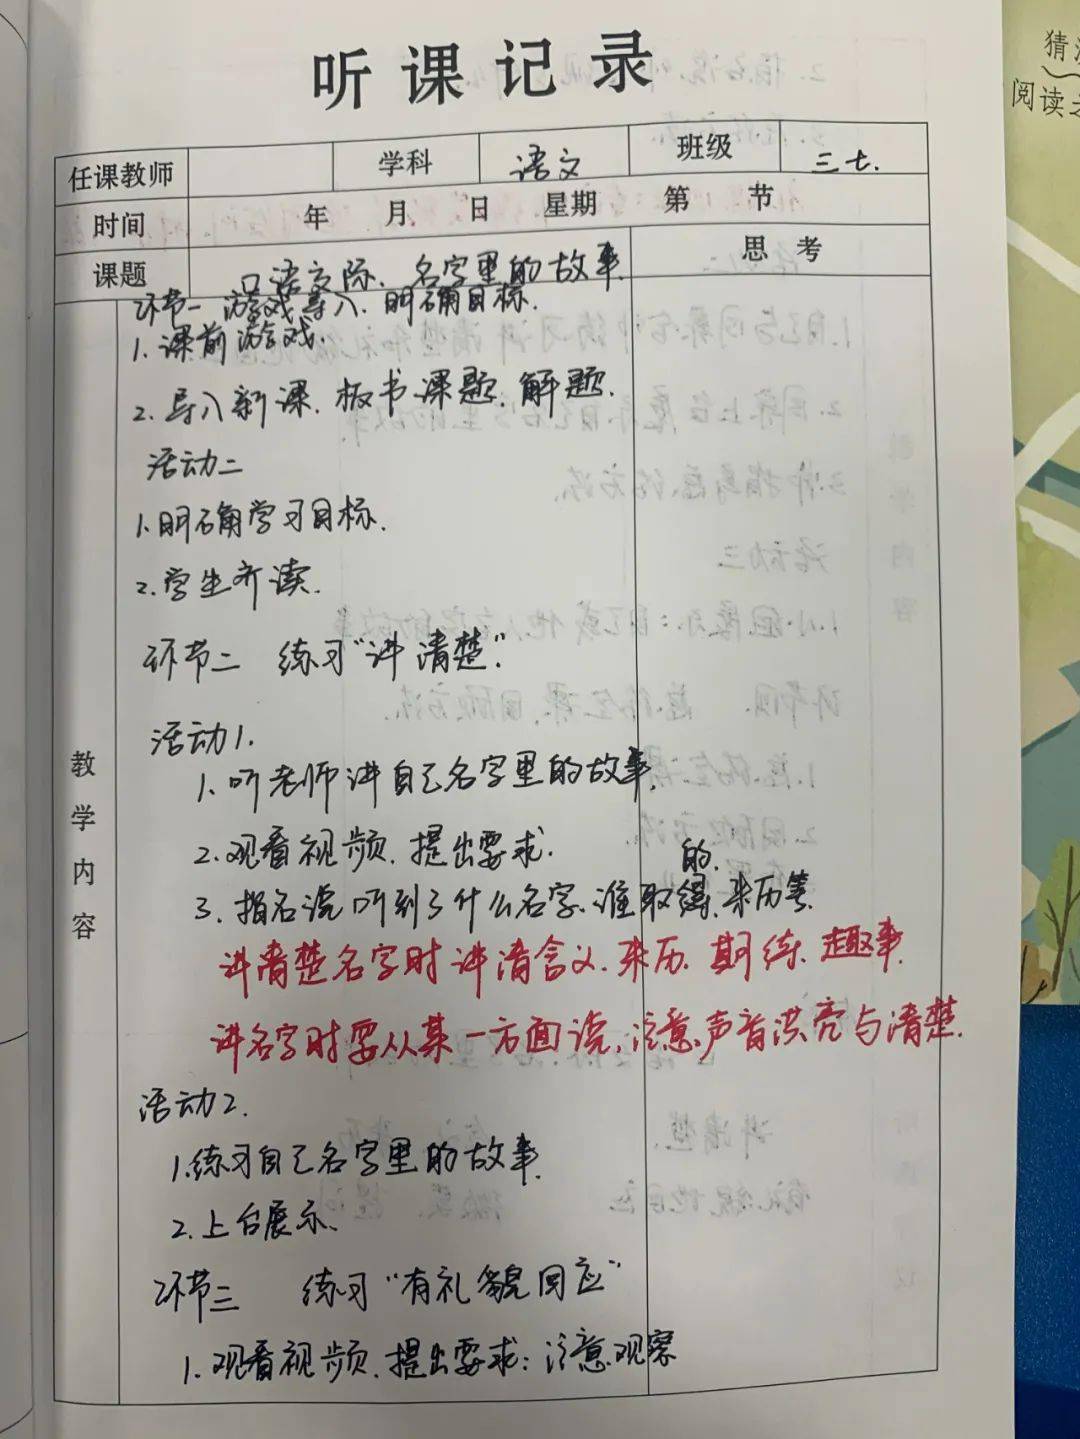 听课记录
任课教师 学科 语文 班级 三七.
时间 年 月 日 星期 第 节
课题 口语交际、名字里的故事. 思考
教学内容
环节一 游戏导入、明确目标.
1. 课前游戏.
2. 导入新课. 板书课题. 解题.
活动二
1. 明确学习目标.
2. 学生齐读.
环节二 练习“讲清楚”.
活动1.
1. 听老师讲自己名字里的故事.
2. 观看视频. 提出要求.
的.
3. 指名说听到了什么名字、谁取得、来历等.
讲清楚名字时讲清含义. 来历. 期 趣事.
讲名字时要从某一方面说, 注意声音洪亮与清楚.
活动2.
1. 练习自己名字里的故事.
2. 上台展示.
环节三 练习“有礼貌回应”
1. 观看视频. 提出要求: 注意观察
猜
阅读